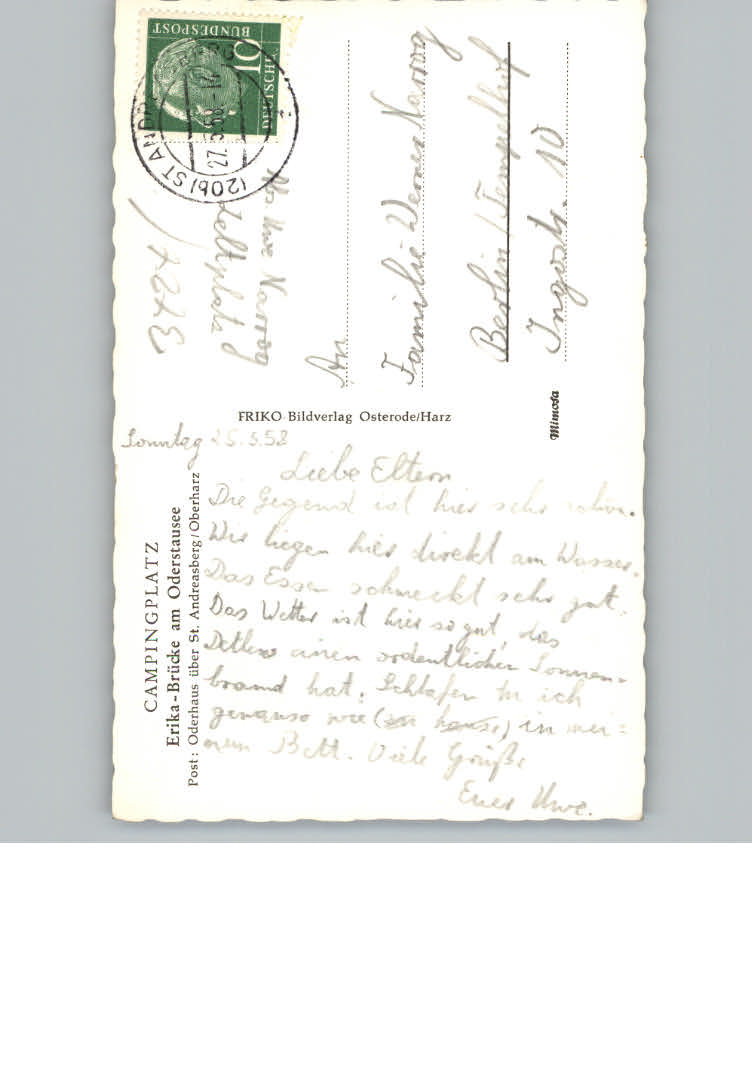 CAMPINGPLATZ
Erika-Brücke am Oderstausee
Post: Oderhaus über St. Andreasberg/Oberharz
Sonntag 25.5.58
Liebe Eltern
Die Gegend ist hier sehr schön.
Wir liegen hier direkt am Wasser.
Das Essen schmeckt sehr gut.
Das Wetter ist hier so gut, das
Detlev einen ordentlichen Sonnen-
brand hat. Schlafen tu ich
genauso wie (zu hause) in mei=
nem Bett. Viele Grüße
Euer Uwe.
FRIKO Bildverlag Osterode/Harz
Mimosa
DEUTSCHE
BUNDESPOST
10
(20b) ST ANDR
27.5.58
Uwe Narrog
Zeltplatz
An
Familie Werner Narrog
Berlin/Tempelhof
Ingostr. 10